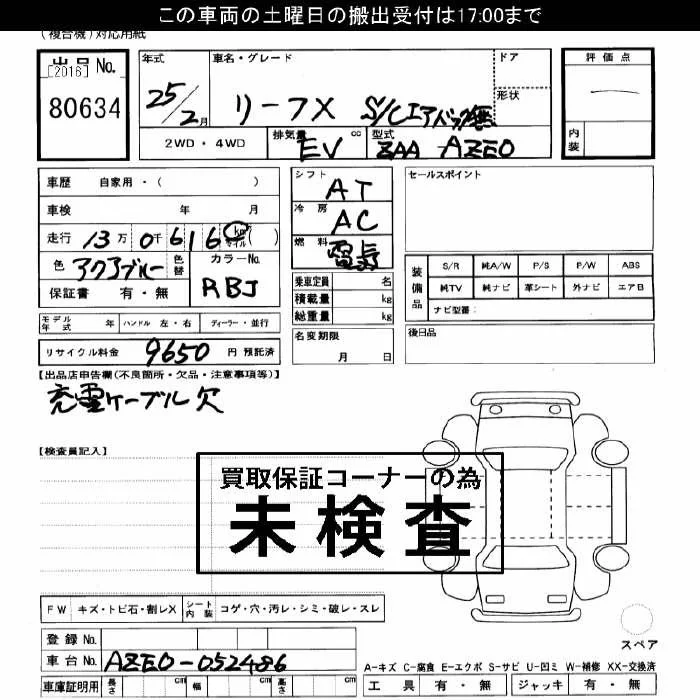 この車両の土曜日の搬出受付は17:00まで
(複合機)対応用紙
出品 No.
[2016]
80634
年式 車名・グレード ドア 評価点
25/2月 リーフX S/Cエアバッグ無 形状
2WD・4WD 排気量 EV cc 型式 ZAA-AZE0 内装
車歴 自家用・( )
車検 年 月
走行 13万 0千 616 km マイル ( )
色 アクアブルー 色替 カラーNo. RBJ
保証書 有・無
シフト AT
冷房 AC
燃料 電気
セールスポイント
装備品 S/R 純A/W P/S P/W ABS
純TV 純ナビ 革シート 外ナビ エアB
ナビ型番:
乗車定員 名
積載量 kg
総重量 kg
モデル年式 年 ハンドル 左・右 ディーラー・並行
名変期限 月 日
後日品
リサイクル料金 9650 円 預託済
【出品店申告欄(不良箇所・欠品・注意事項等)】
充電ケーブル欠
【検査員記入】
買取保証コーナーの為
未検査
FW キズ・トビ石・割レX シート内装 コゲ・穴・汚レ・シミ・破レ・スレ
登録 No.
車台 No. AZE0-052486
車庫証明用 長さ cm 幅 cm 高さ cm
スペア
A-キズ C-腐食 E-エクボ S-サビ U-凹ミ W-補修 XX-交換済
工具 有・無 ジャッキ 有・無